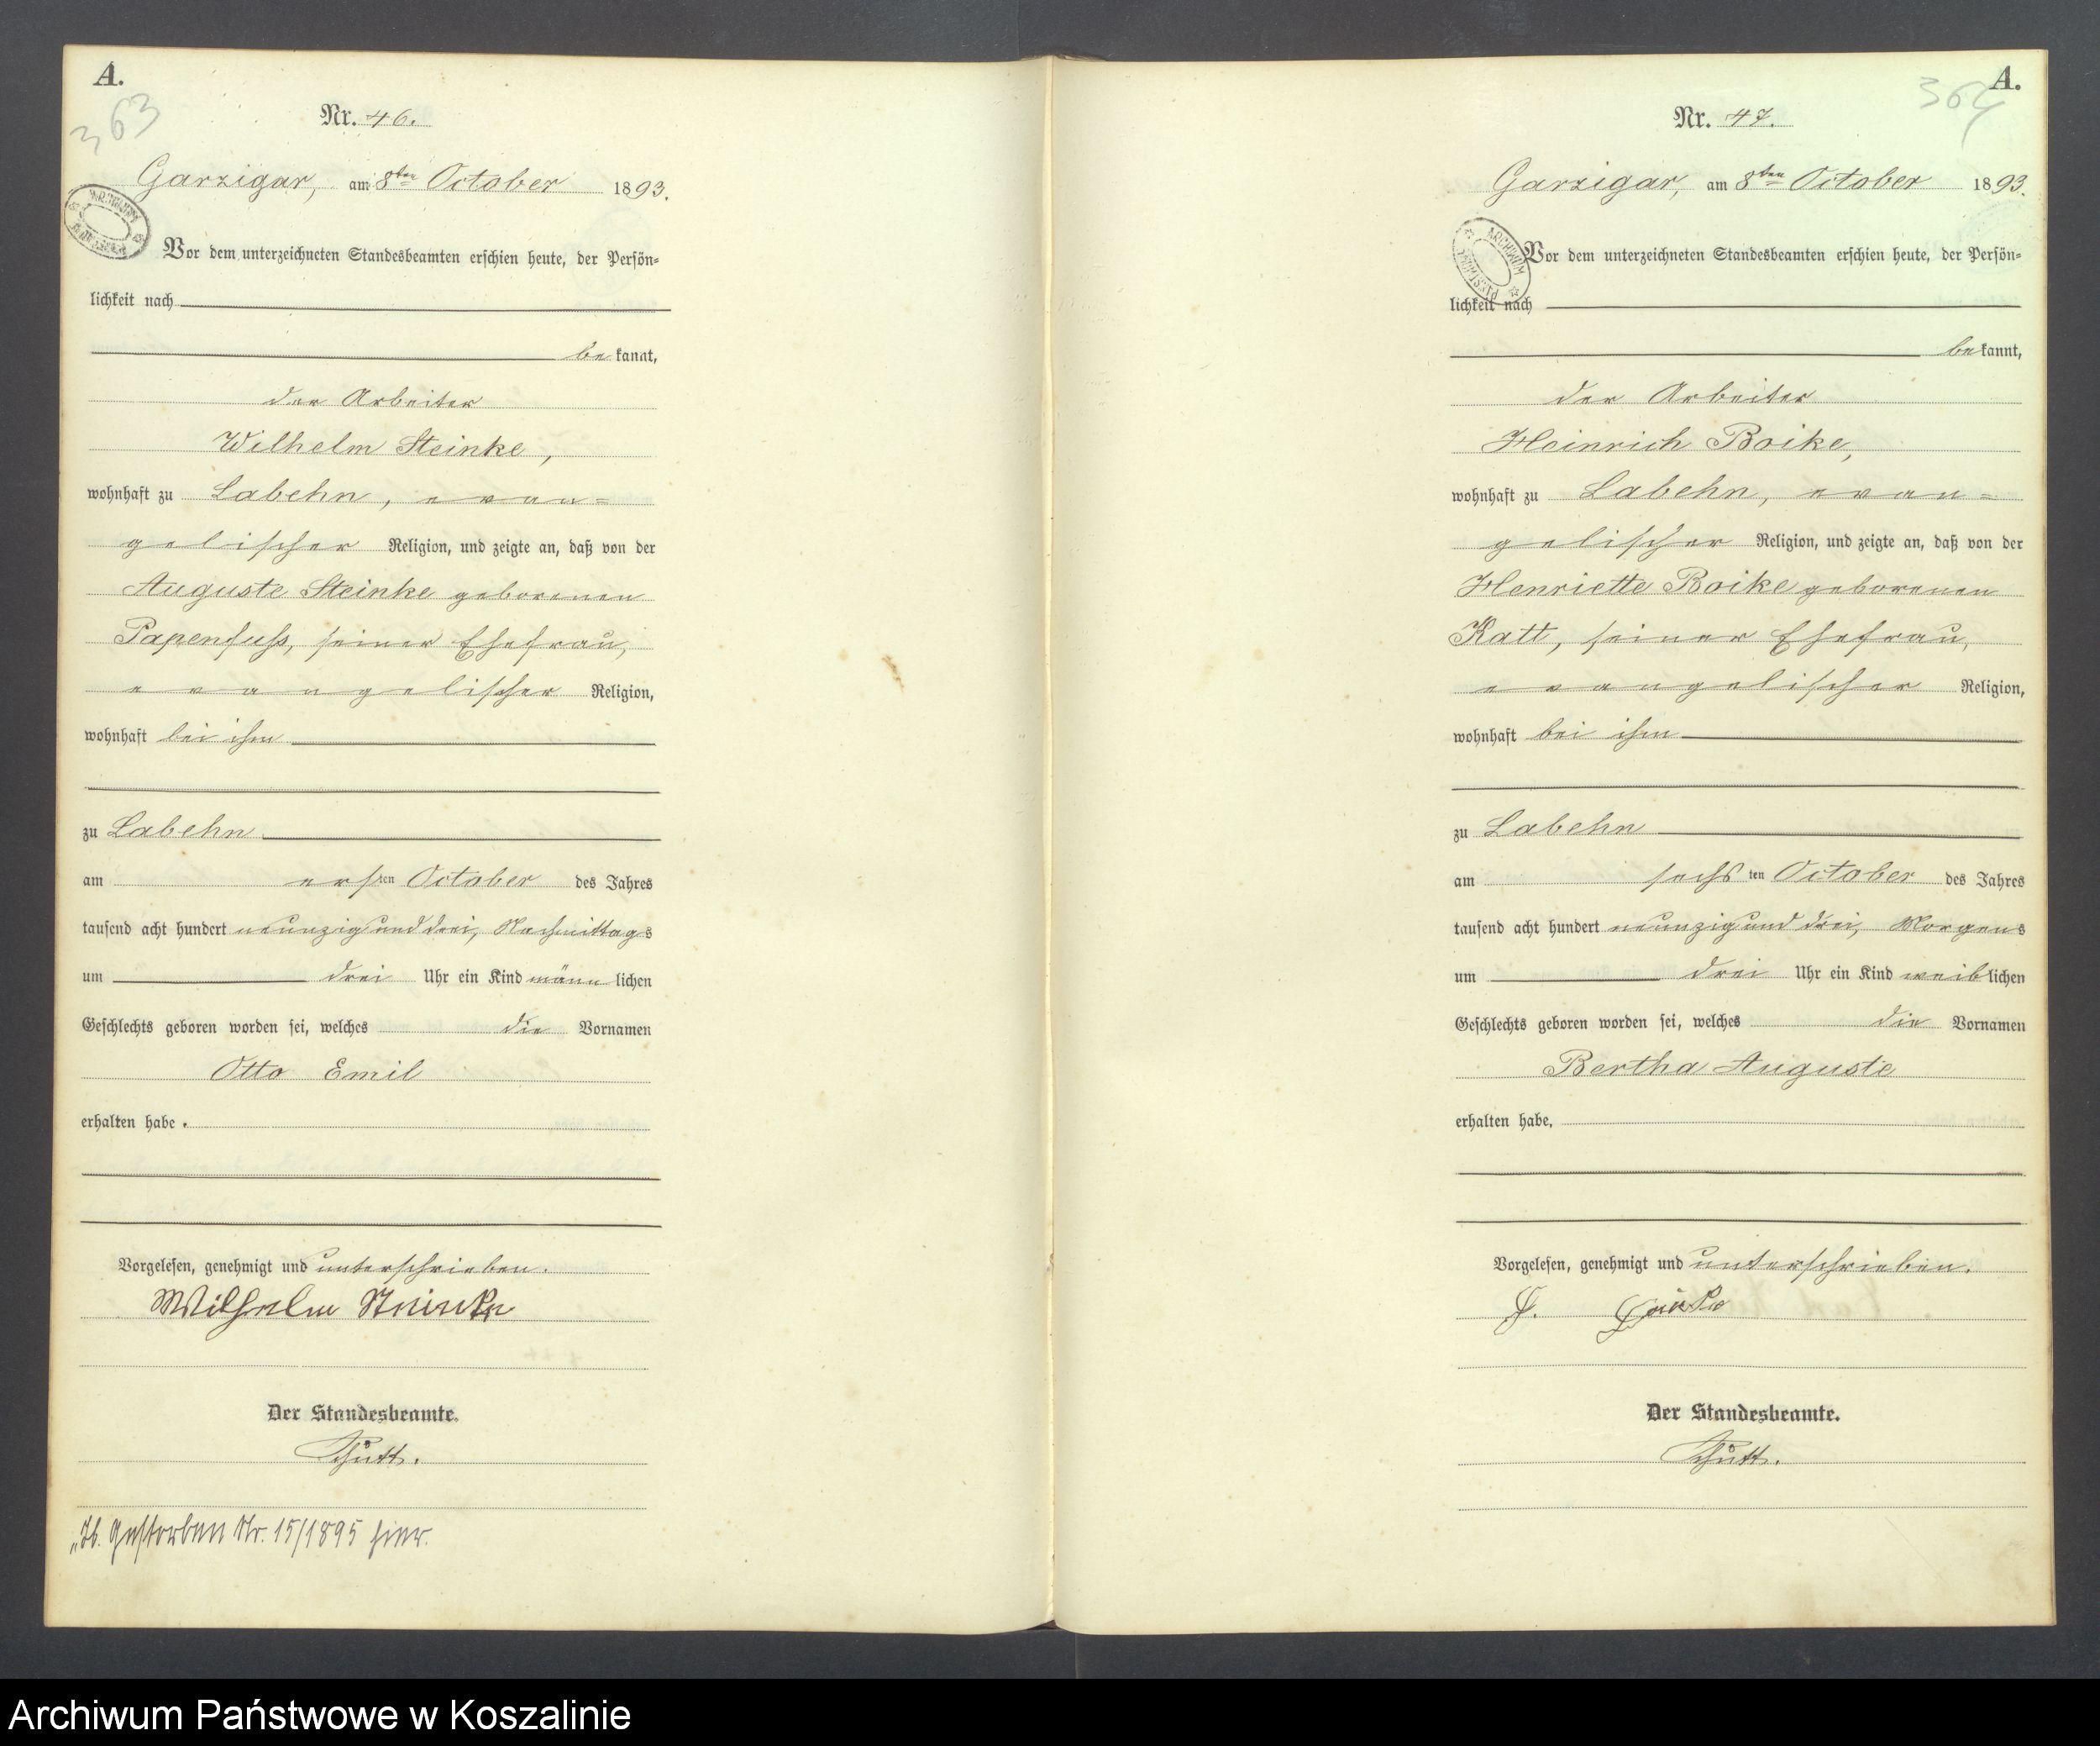 A.
363
Nr. 46.
Garzigar, am 8ten October 1893.
Vor dem unterzeichneten Standesbeamten erschien heute, der Persön-
lichkeit nach
be kannt,
der Arbeiter
Wilhelm Steinke,
wohnhaft zu Labehn, evan-
gelischer Religion, und zeigte an, daß von der
Auguste Steinke geborenen
Papenfuss, seiner Ehefrau,
evangelischer Religion,
wohnhaft bei ihm
zu Labehn
am ersten October des Jahres
tausend acht hundert neunzig und drei, Nachmittags
um drei Uhr ein Kind männlichen
Geschlechts geboren worden sei, welches die Vornamen
Otto Emil
erhalten habe.
Vorgelesen, genehmigt und unterschrieben.
Wilhelm Steinke
Der Standesbeamte.
Gestorben Nr. 15/1895 hier.
A.
364
Nr. 47.
Garzigar, am 8ten October 1893.
ARCHIWUM
Vor dem unterzeichneten Standesbeamten erschien heute, der Persön-
lichkeit nach
bekannt,
der Arbeiter
Heinrich Boike,
wohnhaft zu Labehn, evan-
gelischer Religion, und zeigte an, daß von der
Henriette Boike geborenen
Katt, seiner Ehefrau,
evangelischer Religion,
wohnhaft bei ihm
zu Labehn
am sechsten October des Jahres
tausend acht hundert neunzig und drei, Morgens
um drei Uhr ein Kind weiblichen
Geschlechts geboren worden sei, welches die Vornamen
Bertha Auguste
erhalten habe.
Vorgelesen, genehmigt und unterschrieben.
Der Standesbeamte.
Archiwum Państwowe w Koszalinie